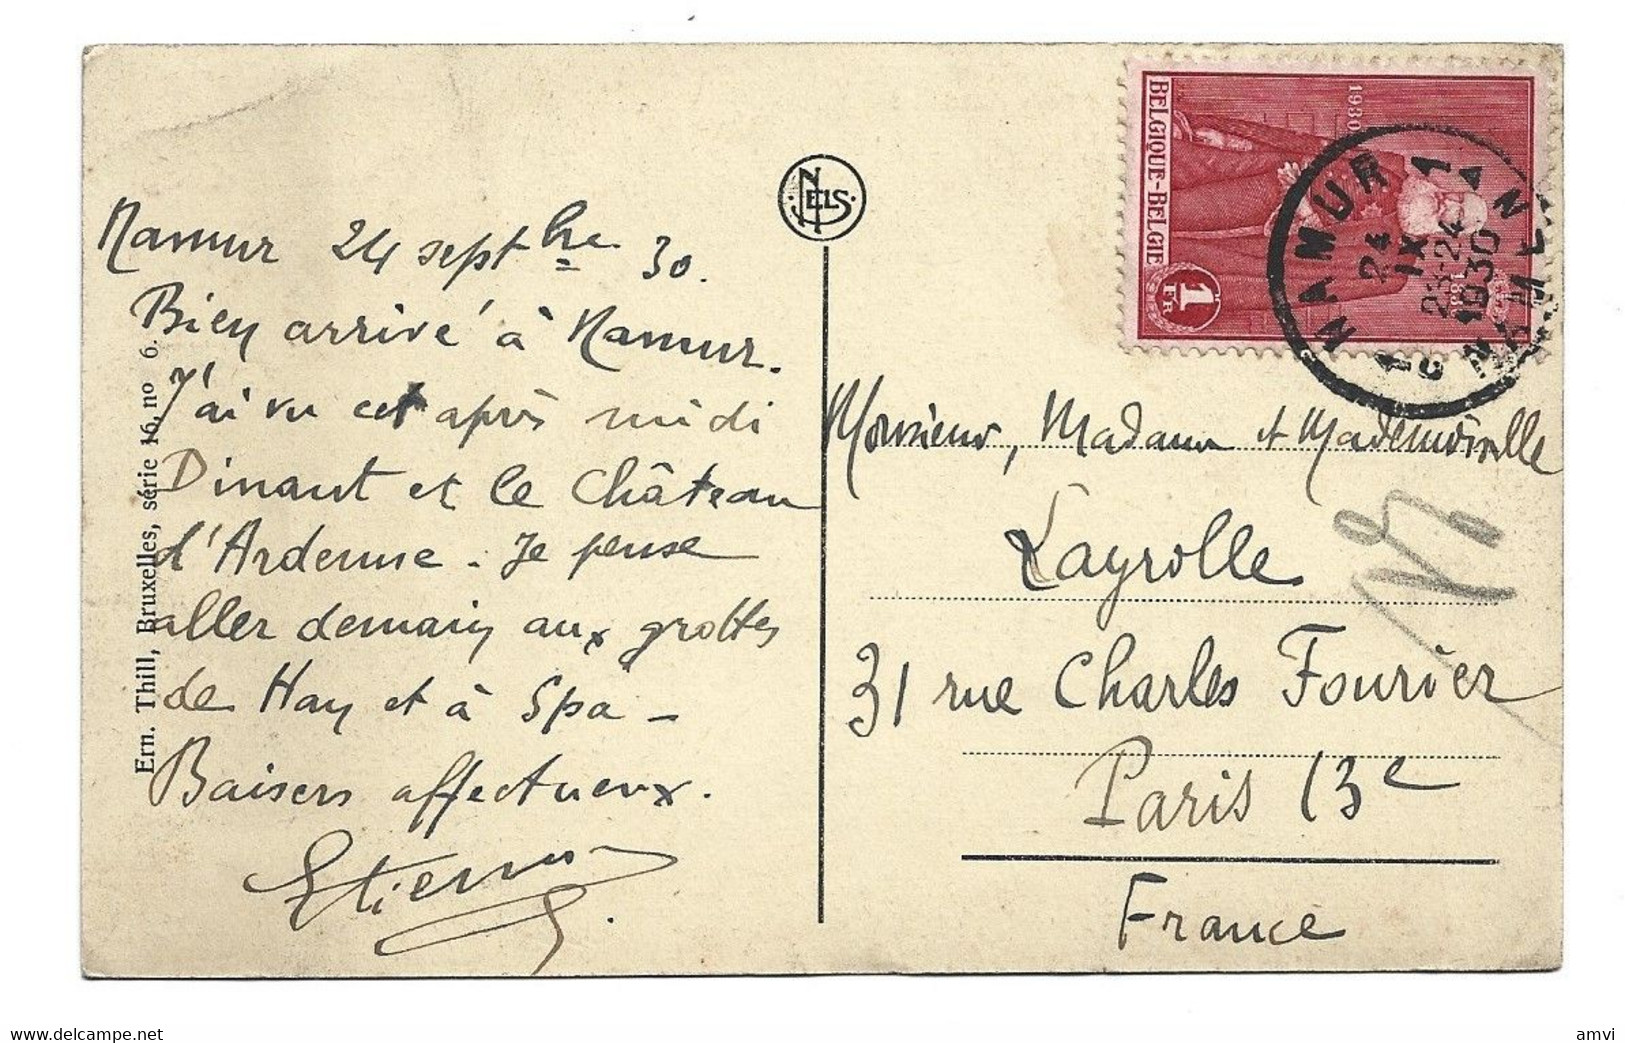 Namur 24 septbre 30.
Bien arrivé à Namur.
J'ai vu cet après midi
Dinant et le Château
d'Ardenne. Je pense
aller demain aux grottes
de Han et à Spa –
Baisers affectueux.
Etienne
Ern. Thill, Bruxelles, série 16, no 6.
NELS
BELGIQUE-BELGIE
1930
1 FR
NAMUR 1
24
IX
23-24
1930
NAMEN
1 C
Monsieur, Madame et Mademoiselle
Layrolle
31 rue Charles Fourier
Paris 13e
France
www.delcampe.net
amvi